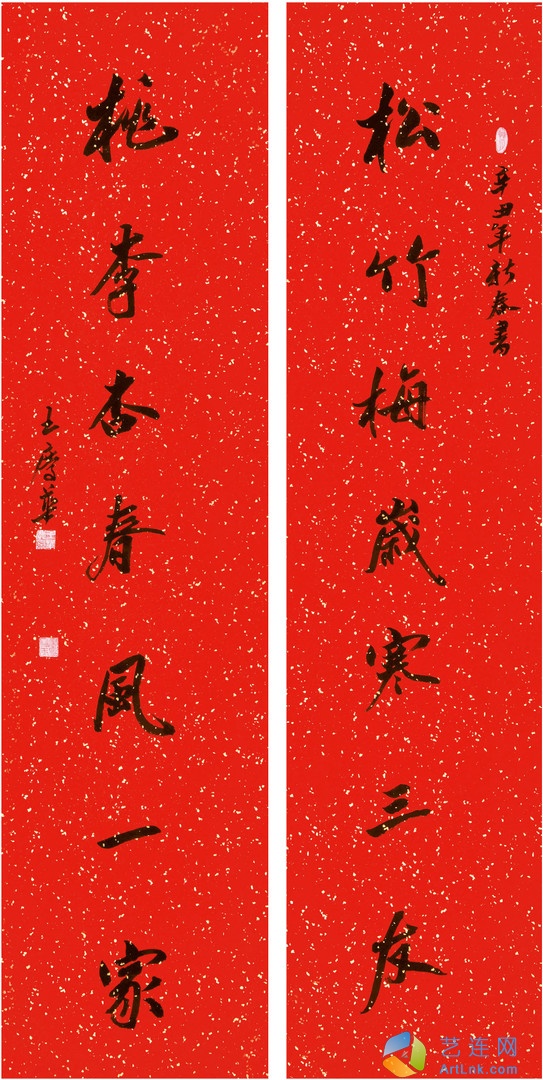 辛丑年新春書
松竹梅歲寒三友
桃李杏春風一家
王華
艺连网
ArtLnk.com